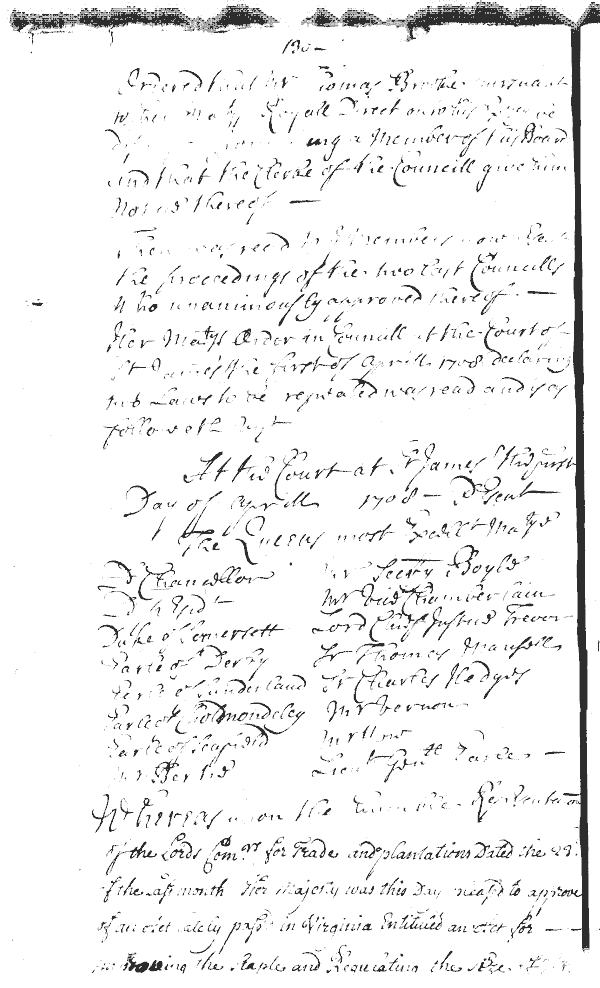 130 –
Ordered that Mr Thomas Brooke pursuant
to her Matys Royall Direct
a Member of this Board
and that the Clerke of the Councill give him
Notice thereof —
Then was read to Members now
the proceedings of the two last Councills
who unanimously approved thereof —
Her Matys Order in Councill at the Court of
St James the first of Aprill 1708 declaring
Laws to be repealed was read and is as
followeth
At the Court at St James the first
Day of Aprill 1708 – Psent
The Queens most Excellt Maty
Ld Chancellor
Ld
Duke of Somersett
Earle of Derby
Earle of Sunderland
Earle of Cholmondeley
Earle of Seafield
Mr Bertie
Mr Secrty Boyle
Mr Vice Chamberlain
Lord Chief Justice Trevor
Sr Thomas Mansell
Sr Charles Hedges
Mr Vernon
Mr
Lieut Genll —
Whereas upon the humble Representation
of the Lords Comrs for Trade and plantations Dated the
of the last month Her Majesty was this Day pleased to approve
of an Act lately past in Virginia Entituled an Act for — —
improving the Staple and Regulating the size